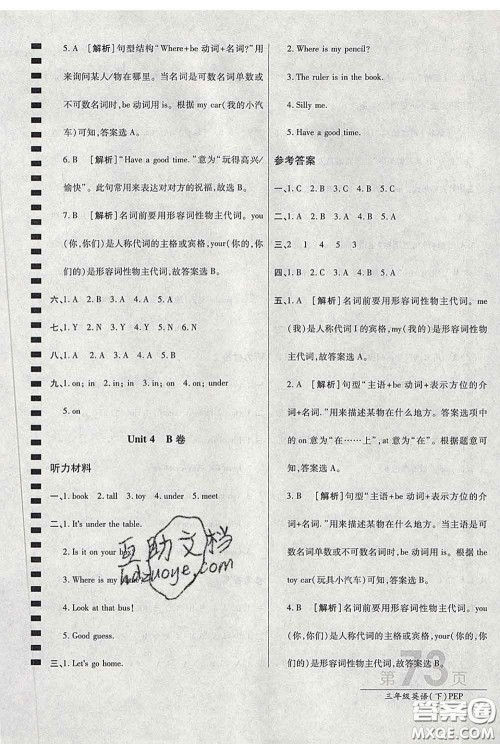 5. A [解析] 句型结构“Where+be 动词+名词?”用
来询问某人/物在哪里。当名词是可数名词单数或
不可数名词时,be 动词用 is。根据 my car(我的小汽
车)可知,答案选 A。
6. B [解析] “Have a good time.”意为“玩得高兴/
愉快”。此句常用来表达对对方的祝福,故选 B。
7. B [解析] 名词前要用形容词性物主代词。you
(你,你们)是人称代词的主格或宾格,your(你的,你
们的)是形容词性物主代词,故答案选 B。
六、1. A 2. B 3. A 4. B 5. A
七、1. Y 2. N 3. N 4. Y 5. N
八、1. A 2. A 3. B 4. B
九、1. on; in 2. in 3. in; on 4. under
5. on
Unit 4 B 卷
听力材料
一、1. book 2. tall 3. toy 4. under 5. meet
二、1. It's under the table.
2. Is it on your
3. Where is my
4. Look at that bus!
5. Good guess.
三、1. Let's go home.
2. Where is my pencil?
3. The ruler is in the book.
4. Silly me.
5. Have a good time.
参考答案
一、1. B 2. C 3. B 4. C 5. C
二、1. A 2. B 3. B 4. A 5. A
三、2 1 4 5 3
四、1. B 2. B 3. A 4. B 5. B
五、1. A [解析] 名词前要用形容词性物主代词。me
(我)是人称代词 I 的宾格,my(我的)是形容词性物
主代词,故答案选 A。
2. A [解析] 句型“主语+be 动词+表示方位的介
词+名词.”用来描述某物在什么地方。
根据题意可知,答案选 A。
3. B [解析] 句型“主语+be 动词+表示方位的介
词+名词.”用来描述某物在什么地方。根据 the
toy car(玩具小汽车)可知,答案选 B。
4. B [解析] 名词前要用形容词性物主代词。you
(你,你们)是人称代词的主格或宾格,your(你的,你
们的)是形容词性物主代词,故答案选 B。
第73页
三年级英语(下)PEP
互助文档
hdzuoye.com
答案圈